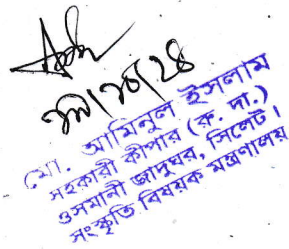 মো. আমিনুল ইসলাম
সহকারী কীপার (রু. দা.)
ওসমানী জাদুঘর, সিলেট।
সংস্কৃতি বিষয়ক মন্ত্রণালয়